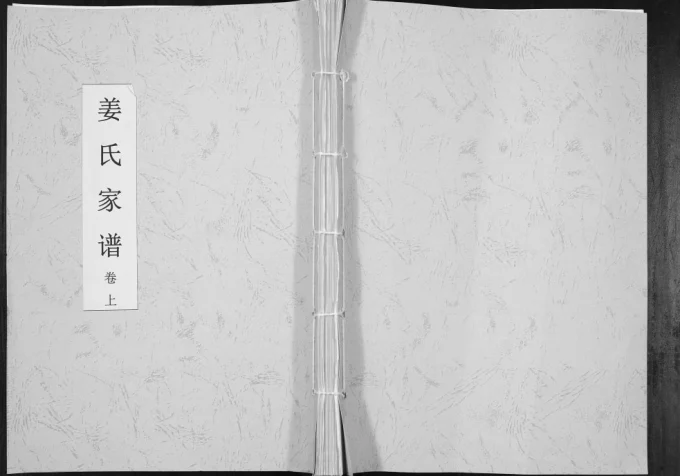 姜氏家谱
卷上